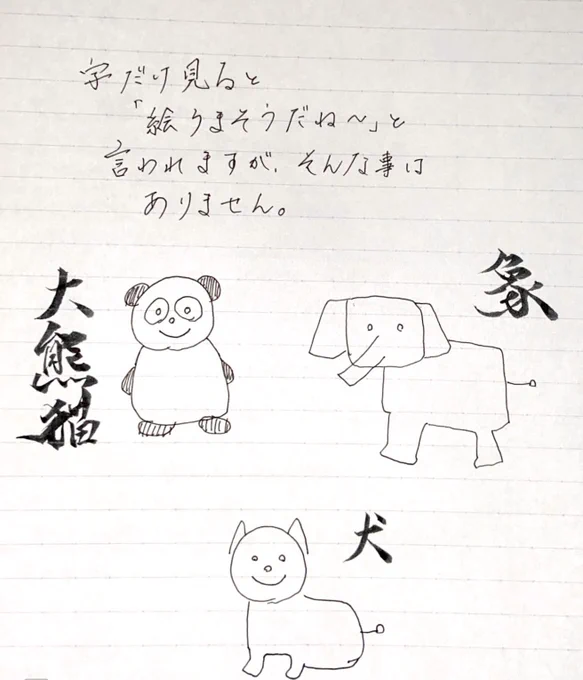 字だけ見ると
「絵うまそうだね〜」と
言われますが、そんな事は
ありません。
大熊猫
象
犬